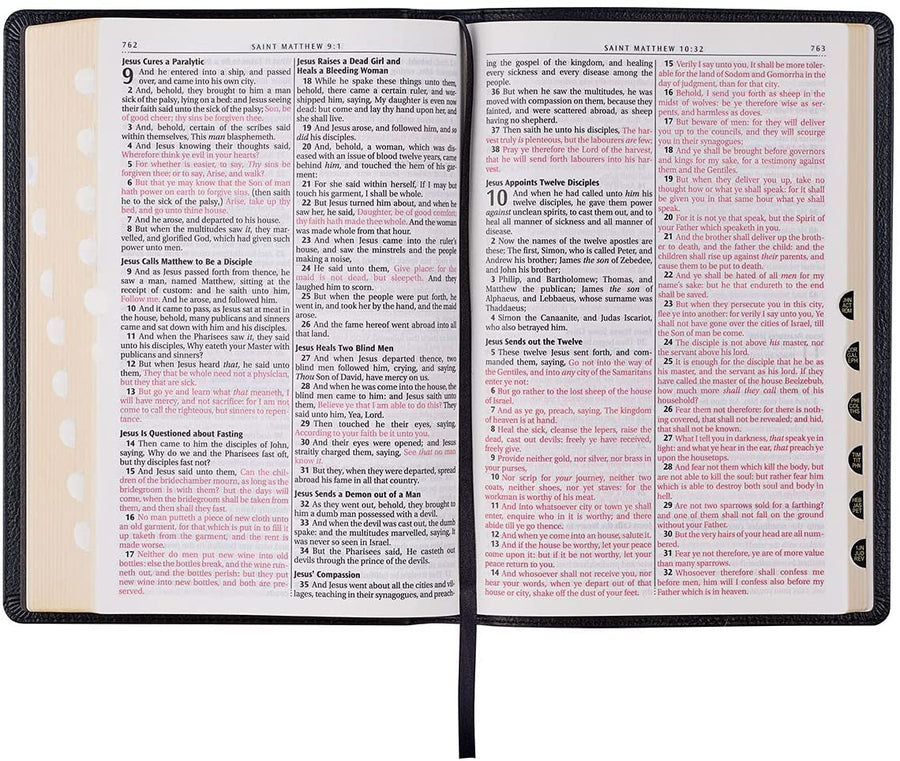 762
SAINT MATTHEW 9:1
Jesus Cures a Paralytic
9 And he entered into a ship, and passed
over, and came into his own city.
2 And, behold, they brought to him a man
sick of the palsy, lying on a bed: and Jesus seeing
their faith said unto the sick of the palsy; Son, be
of good cheer; thy sins be forgiven thee.
3 And, behold, certain of the scribes said
within themselves, This man blasphemeth.
4 And Jesus knowing their thoughts said,
Wherefore think ye evil in your hearts?
5 For whether is easier, to say, Thy sins be
forgiven thee; or to say, Arise, and walk?
6 But that ye may know that the Son of man
hath power on earth to forgive sins, (then saith
he to the sick of the palsy,) Arise, take up thy
bed, and go unto thine house.
7 And he arose, and departed to his house.
8 But when the multitudes saw it, they mar-
velled, and glorified God, which had given such
power unto men.
Jesus Calls Matthew to Be a Disciple
9 And as Jesus passed forth from thence, he
saw a man, named Matthew, sitting at the
receipt of custom: and he saith unto him,
Follow me. And he arose, and followed him.
10 And it came to pass, as Jesus sat at meat in
the house, behold, many publicans and sinners
came and sat down with him and his disciples.
11 And when the Pharisees saw it, they said
unto his disciples, Why eateth your Master with
publicans and sinners?
12 But when Jesus heard that, he said unto
them, They that be whole need not a physician,
but they that are sick.
13 But go ye and learn what that meaneth, I
will have mercy, and not sacrifice: for I am not
come to call the righteous, but sinners to repen-
tance.
Jesus Is Questioned about Fasting
14 Then came to him the disciples of John,
saying, Why do we and the Pharisees fast oft,
but thy disciples fast not?
15 And Jesus said unto them, Can the chil-
dren of the bridechamber mourn, as long as the
bridegroom is with them? but the days will
come, when the bridegroom shall be taken from
them, and then shall they fast.
16 No man putteth a piece of new cloth unto
an old garment, for that which is put in to fill it
up taketh from the garment, and the rent is
made worse.
17 Neither do men put new wine into old
bottles: else the bottles break, and the wine run-
neth out, and the bottles perish: but they put
new wine into new bottles, and both are pre-
served.
Jesus Raises a Dead Girl and
Heals a Bleeding Woman
18 While he spake these things unto them,
behold, there came a certain ruler, and wor-
shipped him, saying, My daughter is even now
dead: but come and lay thy hand upon her, and
she shall live.
19 And Jesus arose, and followed him, and so
did his disciples.
20 And, behold, a woman, which was dis-
eased with an issue of blood twelve years, came
behind him, and touched the hem of his gar-
ment:
21 For she said within herself, If I may but
touch his garment, I shall be whole.
22 But Jesus turned him about, and when he
saw her, he said, Daughter, be of good comfort;
thy faith hath made thee whole. And the woman
was made whole from that hour.
23 And when Jesus came into the ruler's
house, and saw the minstrels and the people
making a noise,
24 He said unto them, Give place: for the
maid is not dead, but sleepeth. And they
laughed him to scorn.
25 But when the people were put forth, he
went in, and took her by the hand, and the maid
arose.
26 And the fame hereof went abroad into all
that land.
Jesus Heals Two Blind Men
27 And when Jesus departed thence, two
blind men followed him, crying, and saying,
Thou Son of David, have mercy on us.
28 And when he was come into the house, the
blind men came to him: and Jesus saith unto
them, Believe ye that I am able to do this? They
said unto him, Yea, Lord.
29 Then touched he their eyes, saying,
According to your faith be it unto you.
30 And their eyes were opened; and Jesus
straitly charged them, saying, See that no man
know it.
31 But they, when they were departed, spread
abroad his fame in all that country.
Jesus Sends a Demon out of a Man
32 As they went out, behold, they brought to
him a dumb man possessed with a devil.
33 And when the devil was cast out, the dumb
spake: and the multitudes marvelled, saying, It
was never so seen in Israel.
34 But the Pharisees said, He casteth out
devils through the prince of the devils.
Jesus' Compassion
35 And Jesus went about all the cities and vil-
lages, teaching in their synagogues, and preach-
SAINT MATTHEW 10:32
763
ing the gospel of the kingdom, and healing
every sickness and every disease among the
people.
36 But when he saw the multitudes, he was
moved with compassion on them, because they
fainted, and were scattered abroad, as sheep
having no shepherd.
37 Then saith he unto his disciples, The har-
vest truly is plenteous, but the labourers are few;
38 Pray ye therefore the Lord of the harvest,
that he will send forth labourers into his har-
vest.
Jesus Appoints Twelve Disciples
10 And when he had called unto him his
twelve disciples, he gave them power
against unclean spirits, to cast them out, and to
heal all manner of sickness and all manner of
disease.
2 Now the names of the twelve apostles are
these; The first, Simon, who is called Peter, and
Andrew his brother; James the son of Zebedee,
and John his brother;
3 Philip, and Bartholomew; Thomas, and
Matthew the publican; James the son of
Alphaeus, and Lebbaeus, whose surname was
Thaddaeus;
4 Simon the Canaanite, and Judas Iscariot,
who also betrayed him.
Jesus Sends out the Twelve
5 These twelve Jesus sent forth, and com-
manded them, saying, Go not into the way of
the Gentiles, and into any city of the Samaritans
enter ye not:
6 But go rather to the lost sheep of the house
of Israel.
7 And as ye go, preach, saying, The kingdom
of heaven is at hand.
8 Heal the sick, cleanse the lepers, raise the
dead, cast out devils: freely ye have received,
freely give.
9 Provide neither gold, nor silver, nor brass in
your purses,
10 Nor scrip for your journey, neither two
coats, neither shoes, nor yet staves: for the
workman is worthy of his meat.
11 And into whatsoever city or town ye shall
enter, enquire who in it is worthy; and there
abide till ye go thence.
12 And when ye come into an house, salute it.
13 And if the house be worthy, let your peace
come upon it: but if it be not worthy, let your
peace return to you.
14 And whosoever shall not receive you, nor
hear your words, when ye depart out of that
house or city, shake off the dust of your feet.
15 Verily I say unto you, It shall be more toler-
able for the land of Sodom and Gomorrha in the
day of judgment, than for that city.
16 Behold, I send you forth as sheep in the
midst of wolves: be ye therefore wise as ser-
pents, and harmless as doves.
17 But beware of men: for they will deliver
you up to the councils, and they will scourge
you in their synagogues;
18 And ye shall be brought before governors
and kings for my sake, for a testimony against
them and the Gentiles.
19 But when they deliver you up, take no
thought how or what ye shall speak: for it shall
be given you in that same hour what ye shall
speak.
20 For it is not ye that speak, but the Spirit of
your Father which speaketh in you.
21 And the brother shall deliver up the broth-
er to death, and the father the child: and the
children shall rise up against their parents, and
cause them to be put to death.
22 And ye shall be hated of all men for my
name's sake: but he that endureth to the end
shall be saved.
23 But when they persecute you in this city,
flee ye into another: for verily I say unto you, Ye
shall not have gone over the cities of Israel, till
the Son of man be come.
24 The disciple is not above his master, nor
the servant above his lord.
25 It is enough for the disciple that he be as
his master, and the servant as his lord. If they
have called the master of the house Beelzebub,
how much more shall they call them of his
household?
26 Fear them not therefore: for there is noth-
ing covered, that shall not be revealed; and hid,
that shall not be known.
27 What I tell you in darkness, that speak ye in
light: and what ye hear in the ear, that preach ye
upon the housetops.
28 And fear not them which kill the body, but
are not able to kill the soul: but rather fear him
which is able to destroy both soul and body in
hell.
29 Are not two sparrows sold for a farthing?
and one of them shall not fall on the ground
without your Father.
30 But the very hairs of your head are all num-
bered.
31 Fear ye not therefore, ye are of more value
than many sparrows.
32 Whosoever therefore shall confess me
before men, him will I confess also before my
Father which is in heaven.
JHN
ACT
ROM
COR
GAL
EPH
PHI
COL
THS
TIM
TIT
PHN
HEB
JAS
PET
1JN
JUD
REV